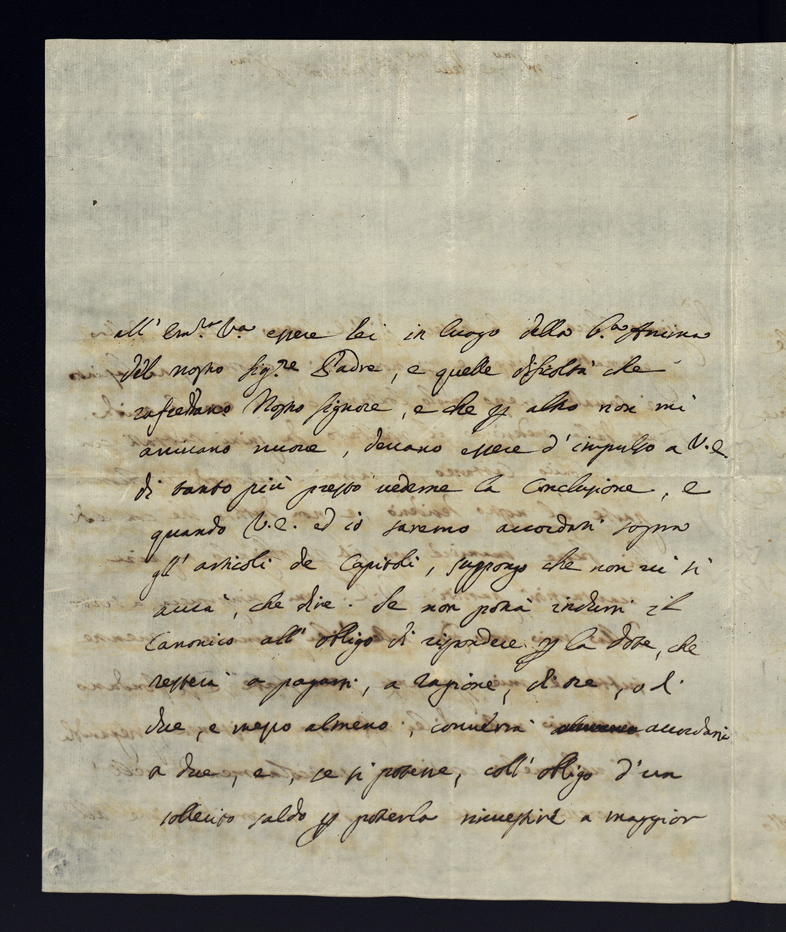 all' Em.za V.a essere lei in luogo della b.a Anima
del nostro Sig.re Padre, e quelle dificoltà che
rafredano Nostro Signore, e che p altro non mi
arrivano nuove, devano essere d'impulso a V.E.
di tanto più presto vederne la Conclusione, e
quando V.E. ed io saremo accordati sopra
gl'articoli de Capitoli, suppongo che non vi si
avrà, che dire. Se non potrà indursi il
Canonico all'obligo di rispondere p la dote, che
resterà a pagarsi, a ragione, di tre, o di
due, e mezzo almeno, converrà accordarsi
a due, e, se si potesse, coll'obligo d'un
sollecito saldo p poterla rinvestire a maggior